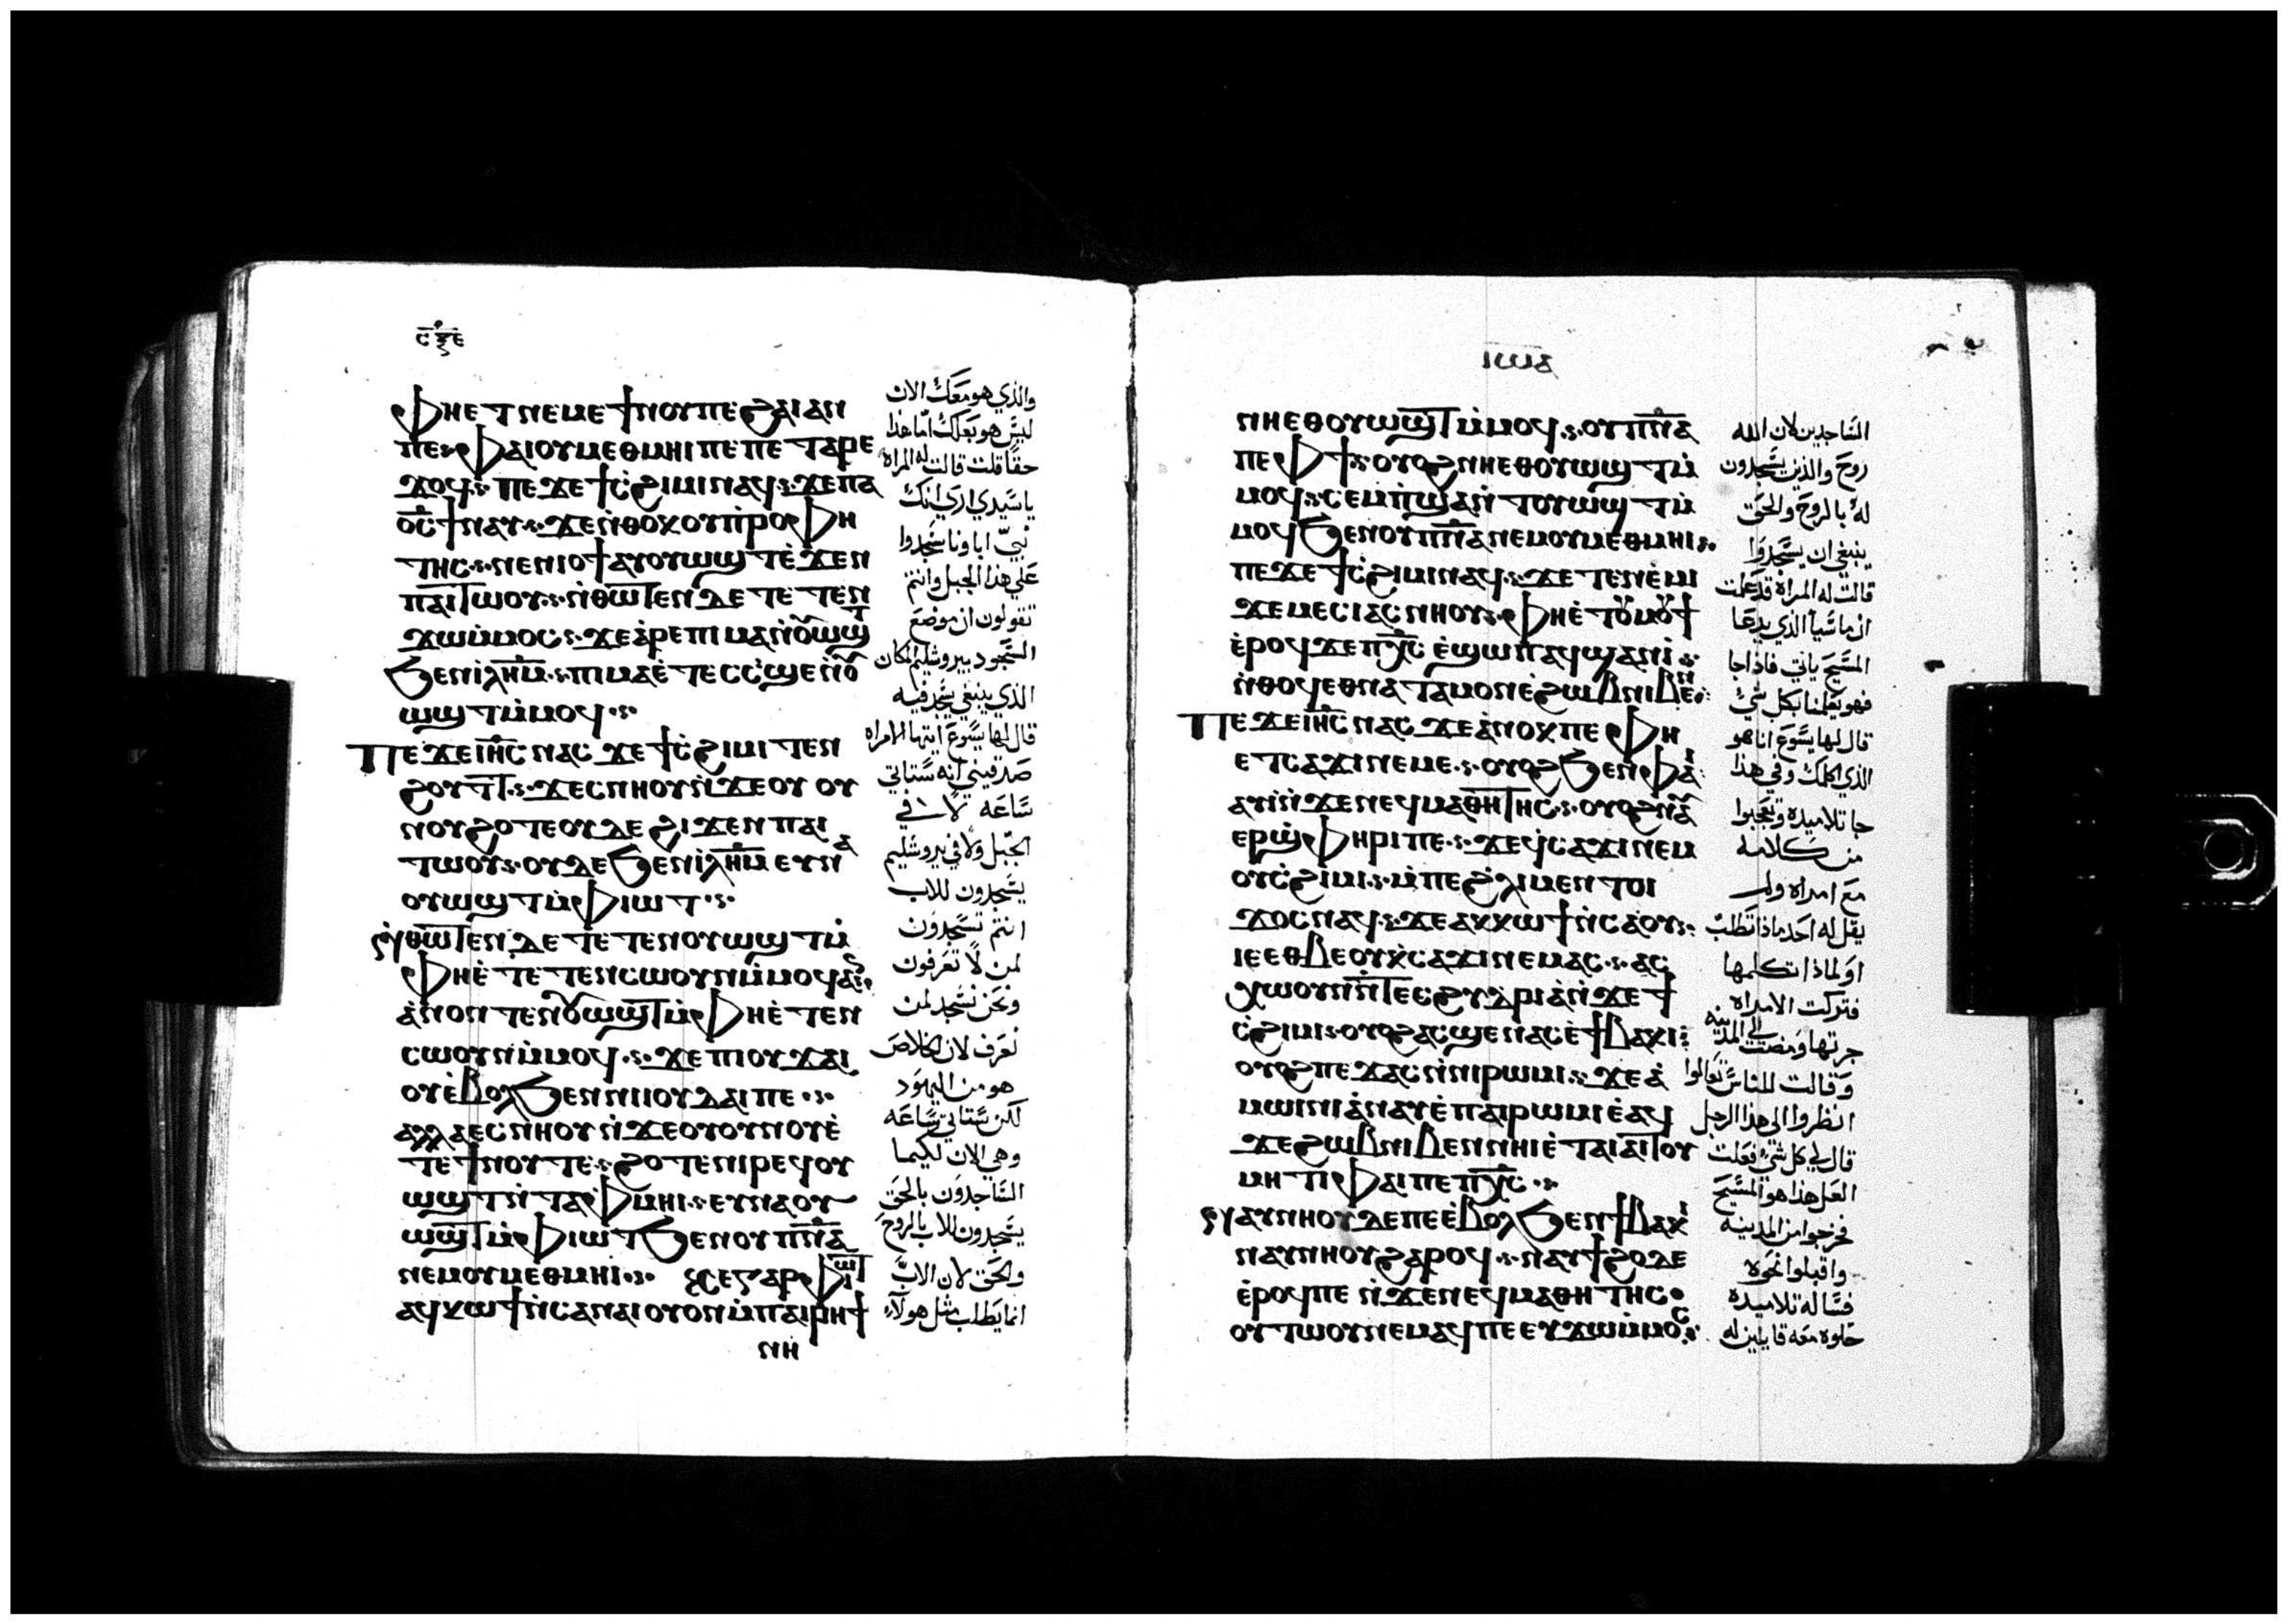 ⲥⲝⲉ
ⲫⲏⲉⲧⲛⲉⲙⲉϯⲛⲟⲩⲡⲉϩⲁⲓⲁⲛ
ⲡⲉ ⲫⲁⲓⲟⲩⲙⲉⲑⲙⲏⲓⲡⲉⲡⲉⲧⲁⲣⲉ
ϫⲟϥ ⲡⲉϫⲉϯⲥ̀ϩⲓⲙⲓⲛⲁϥ ϫⲉⲡⲁ
ⲟ̅ⲥ̅ϯⲛⲁⲩ ϫⲉⲛ̀ⲑⲟⲕⲟⲩⲡ̀ⲣⲟⲫⲏ
ⲧⲏⲥ ⲛⲉⲛⲓⲟϯⲁⲩⲟⲩⲱϣⲧϩⲓϫⲉⲛ
ⲡⲁⲓⲧⲱⲟⲩ ⲛ̀ⲑⲱⲧⲉⲛⲇⲉⲧⲉⲧⲉⲛ
ϫⲱⲙ̀ⲙⲟⲥ ϫⲉⲁ̀ⲣⲉⲡⲓⲙⲁⲛ̀ⲟⲩⲱϣⲧ
ϧⲉⲛⲓ̅ⲗ̅ⲏ̅ⲙ̅ ⲡⲓⲙⲁⲉ̀ⲧⲉⲥⲥ̀ϣⲉⲛ̀ⲟⲩ
ⲱϣⲧⲙ̀ⲙⲟϥ
ⲡⲉϫⲉⲓ̅ⲏ̅ⲥ̅ⲛⲁⲥ ϫⲉϯⲥ̀ϩⲓⲙⲓⲧⲉⲛ
ϩⲟⲩⲧⲧ ϫⲉⲥⲛⲏⲟⲩⲛ̀ϫⲉⲟⲩⲟⲩ
ⲛⲟⲩϩⲟⲧⲉⲟⲩⲇⲉϩⲓϫⲉⲛⲡⲁⲓ
ⲧⲱⲟⲩ ⲟⲩⲇⲉϧⲉⲛⲓ̅ⲗ̅ⲏ̅ⲙ̅ⲉⲩⲛⲁ
ⲟⲩⲱϣⲧⲙ̀ⲫⲓⲱⲧ
ⲛ̀ⲑⲱⲧⲉⲛⲇⲉⲧⲉⲧⲉⲛⲟⲩⲱϣⲧⲙ̀
ⲫⲏⲉ̀ⲧⲉⲧⲉⲛⲥⲱⲟⲩⲛⲙ̀ⲙⲟϥⲁⲛ
ⲁ̀ⲛⲟⲛⲧⲉⲛⲟⲩⲱϣⲧⲙ̀ⲫⲏⲉ̀ⲧⲉⲛ
ⲥⲱⲟⲩⲛⲙ̀ⲙⲟϥ ϫⲉⲡⲓⲟⲩϫⲁⲓ
ⲟⲩⲉ̀ⲃⲟⲗϧⲉⲛⲛⲓⲓⲟⲩⲇⲁⲓⲡⲉ
ⲁⲗⲗⲁⲉⲥⲛⲏⲟⲩⲛ̀ϫⲉⲟⲩⲟⲩⲛⲟⲩⲉ̀
ⲧⲉϯⲛⲟⲩⲧⲉ ϩⲟⲧⲉⲛⲓⲣⲉϥⲟⲩ
ⲱϣⲧⲛ̀ⲧⲁⲫⲙⲏⲓ ⲉⲩⲛⲁⲟⲩ
ⲱϣⲧⲙ̀ⲫⲓⲱⲧϧⲉⲛⲟⲩⲡ̅ⲛ̅ⲁ̅
ⲛⲉⲙⲟⲩⲙⲉⲑⲙⲏⲓ ⲕⲉⲅⲁⲣⲫⲓⲱⲧ
ⲁϥⲕⲱϯⲛ̀ⲥⲁⲛⲁⲓⲟⲩⲟⲛⲙ̀ⲡⲁⲓⲣⲏϯ
ⲛⲏ
والذي هو معك الان
ليس هو بعلك اما هذا
حقا قلت قالت له المراه
يا سيدي اري انك
نبي اباونا سجدوا
علي هذا الجبل وانتم
تقولون ان موضع
السجود بيروشليم المكان
الذي ينبغي يسجد فيه
قال لها يسوع ايتها الامراه
صدقيني انه ستاتي
ساعه لا في
الجبل ولا في يروشليم
يسجدون للاب
انتم تسجدون
لمن لا تعرفون
ونحن نسجد لمن
نعرف لان الخلاص
هو من اليهود
لكن ستاتي ساعه
وهي الان لكيما
الساجدون بالحق
يسجدون للاب بالروح
والحق لان الاب
انما يطلب مثل هولاء
ⲓⲱⲁ
ⲛⲏⲉⲑⲟⲩⲱϣⲧⲙ̀ⲙⲟϥ ⲟⲩⲡ̅ⲛ̅ⲁ̅
ⲡⲉⲫϯ ⲟⲩⲟϩⲛⲏⲉⲑⲟⲩⲱϣⲧⲙ̀
ⲙⲟϥ ⲥⲉⲙ̀ⲡϣⲁⲛ̀ⲧⲟⲩⲱϣⲧⲙ̀
ⲙⲟϥϧⲉⲛⲟⲩⲡ̅ⲛ̅ⲁ̅ⲛⲉⲙⲟⲩⲙⲉⲑⲙⲏⲓ
ⲡⲉϫⲉϯⲥ̀ϩⲓⲙⲓⲛⲁϥ ϫⲉⲧⲉⲛⲉ̀ⲙⲓ
ϫⲉⲙⲉⲥⲓⲁⲥⲛⲏⲟⲩ ⲫⲏⲉ̀ⲧⲟⲩⲙⲟⲩϯ
ⲉ̀ⲣⲟϥϫⲉⲡⲭ̅ⲥ̅ ⲉ̀ϣⲱⲡⲁϥϣⲁⲛⲓ̀
ⲛ̀ⲑⲟϥⲉⲑⲛⲁⲧⲁⲙⲟⲛⲉ̀ϩⲱⲃⲛⲓⲃⲉⲛ
ⲡⲉϫⲉⲓ̅ⲏ̅ⲥ̅ⲛⲁⲥ ϫⲉⲁ̀ⲛⲟⲕⲡⲉⲫⲏ
ⲉⲧⲥⲁϫⲓⲛⲉⲙⲉ ⲟⲩⲟϩϧⲉⲛⲫⲁⲓ
ⲁⲩⲓ̀ⲛ̀ϫⲉⲛⲉϥⲙⲁⲑⲏⲧⲏⲥ ⲟⲩⲟϩⲛⲁⲩ
ⲉⲣϣ̀ⲫⲏⲣⲓⲡⲉ ϫⲉϥ̀ⲥⲁϫⲓⲛⲉⲙ
ⲟⲩⲥ̀ϩⲓⲙⲓ ⲙ̀ⲡⲉϩ̀ⲗⲓⲙⲉⲛⲧⲟⲓ
ϫⲟⲥⲛⲁϥ ϫⲉⲁⲕⲕⲱϯⲛ̀ⲥⲁⲟⲩ
ⲓⲉⲉⲑⲃⲉⲟⲩⲕ̀ⲥⲁϫⲓⲛⲉⲙⲁⲥ ⲁⲥ
ⲭⲱⲟⲩⲛⲛ̀ⲧⲉⲥϩⲩⲇⲣⲓⲁⲛ̀ϫⲉϯ
ⲥ̀ϩⲓⲙⲓ ⲟⲩⲟϩⲁⲥϣⲉⲛⲁⲥⲉ̀ϯⲃⲁⲕⲓ
ⲟⲩⲟϩⲡⲉϫⲁⲥⲛ̀ⲛⲓⲣⲱⲙⲓ ϫⲉⲁ̀
ⲙⲱⲓⲛⲓⲁ̀ⲛⲁⲩⲉ̀ⲡⲁⲓⲣⲱⲙⲓⲉ̀ⲁϥ
ϫⲉϩⲱⲃⲛⲓⲃⲉⲛⲛⲏⲓⲉ̀ⲧⲁⲓⲁⲓⲧⲟⲩ
ⲙⲏⲧⲓⲫⲁⲓⲡⲉⲡⲭ̅ⲥ̅
ⲛⲁⲩⲛⲏⲟⲩⲇⲉⲡⲉⲉ̀ⲃⲟⲗϧⲉⲛϯⲃⲁⲕⲓ
ⲛⲁⲩⲛⲏⲟⲩϩⲁⲣⲟϥ ⲛⲁⲩϯϩⲟⲇⲉ
ⲉ̀ⲣⲟϥⲡⲉⲛ̀ϫⲉⲛⲉϥⲙⲁⲑⲏⲧⲏⲥ
ⲟⲩⲧⲱⲟⲩⲛⲉⲙⲁϥⲡⲉⲉⲩϫⲱⲙ̀ⲙⲟⲥ
الساجدين لان الله
روح والذين يسجدون
له بالروح والحق
ينبغي ان يسجدوا
قالت له المراه قد علمت
ان ماسيا الذي يدعا
المسيح ياتي فاذا جا
فهو يعلمنا بكل شي
قال لها يسوع انا هو
الذي اكلمك وفي هذا
جا تلاميذه وتعجبوا
من كلامه
مع امراه ولم
يقل له احد ماذا تطلب
او لماذا تكلمها
فتركت الامراه
جرتها ومضت الي المدينه
وقالت للناس تعالوا
انظروا الي هذا الرجل
قال لي كل شي فعلت
لعل هذا هو المسيح
فخرجوا من المدينه
واقبلوا نحوه
فساله تلاميذه
خلوه معه قايلين له